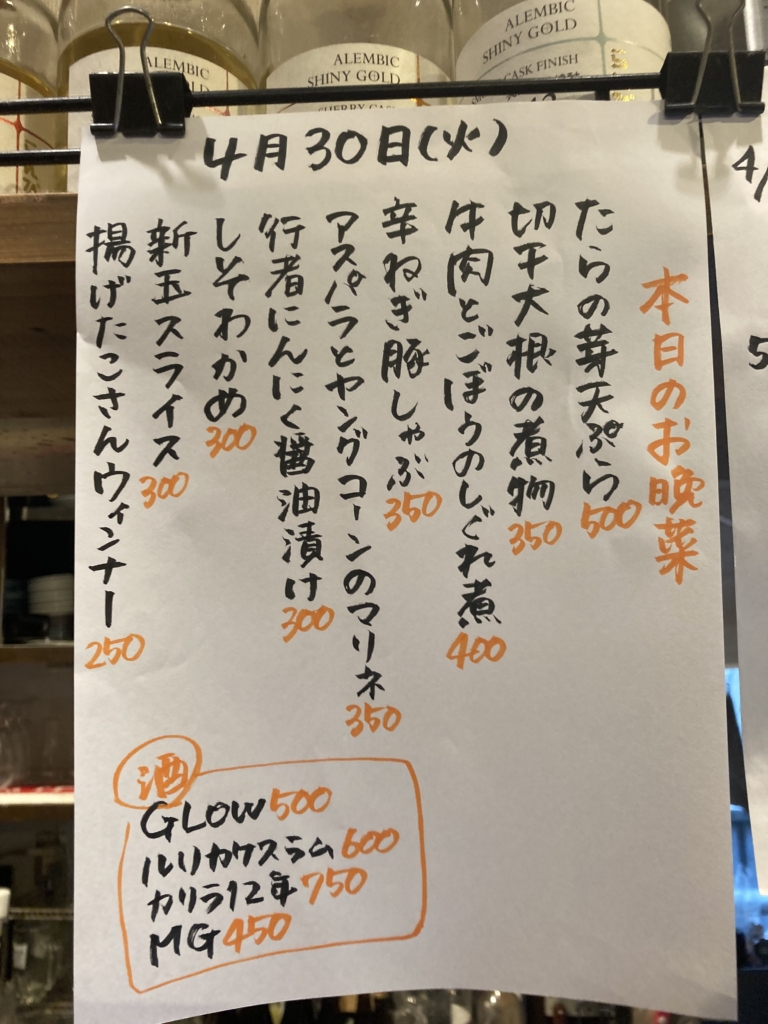 ALEMBIC
SHINY GOLD
ALEMBIC
SHINY GOLD
SHERRY CASK
ALEMBIC
SHINY GOLD
CASK FINISH
4月30日(火)
本日のお晩菜
たらの芽天ぷら 500
切干大根の煮物 350
牛肉とごぼうのしぐれ煮 400
辛ねぎ豚しゃぶ 350
アスパラとヤングコーンのマリネ 350
行者にんにく醤油漬け 300
しそわかめ 300
新玉スライス 300
揚げたこさんウィンナー 250
酒
GLOW 500
ルリカケスラム 600
カリラ12年 750
MG 450
4/
5